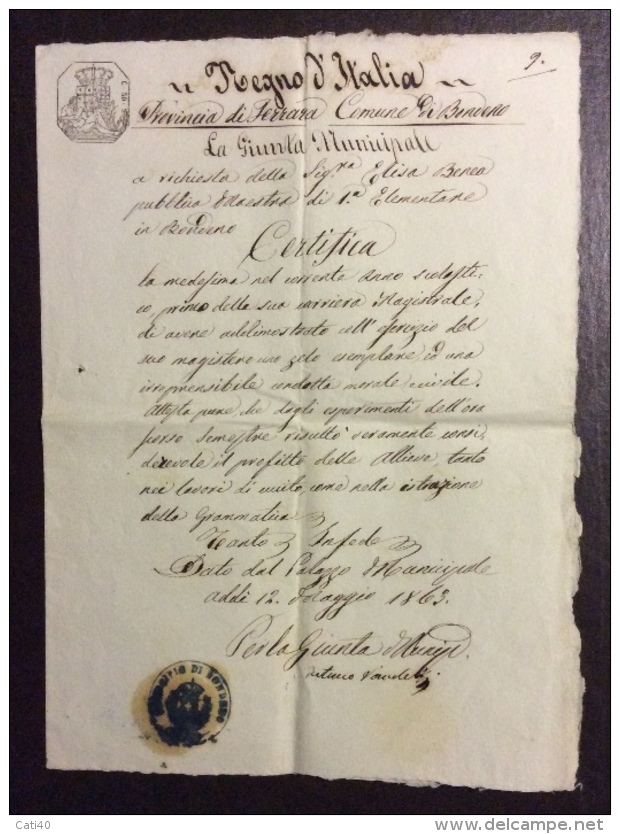 9.
Regno d'Italia
Provincia di Ferrara Comune di Bondeno
La Giunta Municipale
a richiesta della Sigra Elisa Benea
pubblica Maestra di 1a Elementare
in Bondeno
Certifica
la medesima nel corrente anno scolasti-
co, primo della sua carriera Magistrale,
di avere addimostrato nell' esercizio del
suo magistero uno zelo esemplare ed una
irreprensibile condotta morale e civile.
Attesta pure, che dagli esperimenti dell'ora
scorso Semestre risultò veramente consi,
derevole il profitto delle Allieve, tanto
nei lavori di cucito, come nella istruzione
della Grammatica
Tanto Infede
Dato dal Palazzo Municipale
addì 12. Maggio 1863.
Per la Giunta Municip.
MUNICIPIO DI BONDENO
Cati40
delcampe.net